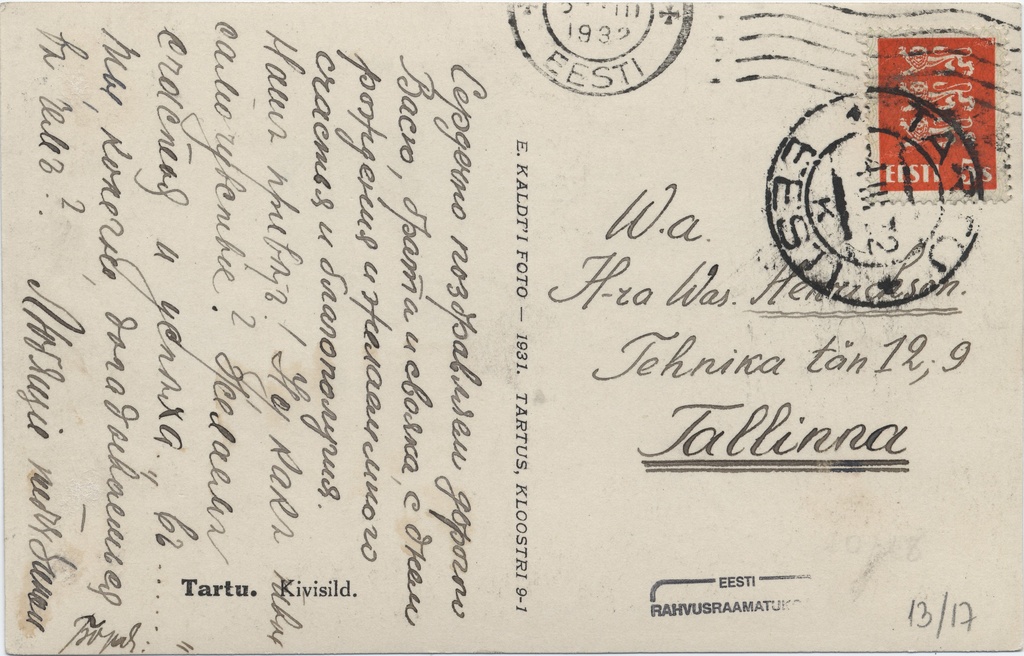 Сердечно поздравляем дорогого
Васю, брата и свояка, с днем
рождения и желаем много
счастья и благополучия.
Нашъ приветъ! Ну какъ
самочувствіе? Желаем
счастья и успѣха
ты, конечно, догадываешься
Любящіе тебя
E. KALDT'I FOTO — 1931. TARTUS, KLOOSTRI 9-1
Tartu. Kivisild.
1932
EESTI
EESTI 5 S
TARTU
EESTI
K
W.a.
H-ra Was. Henrichson.
Tehnika tän 12, 9
Tallinna
EESTI
RAHVUSRAAMATUK
13/17